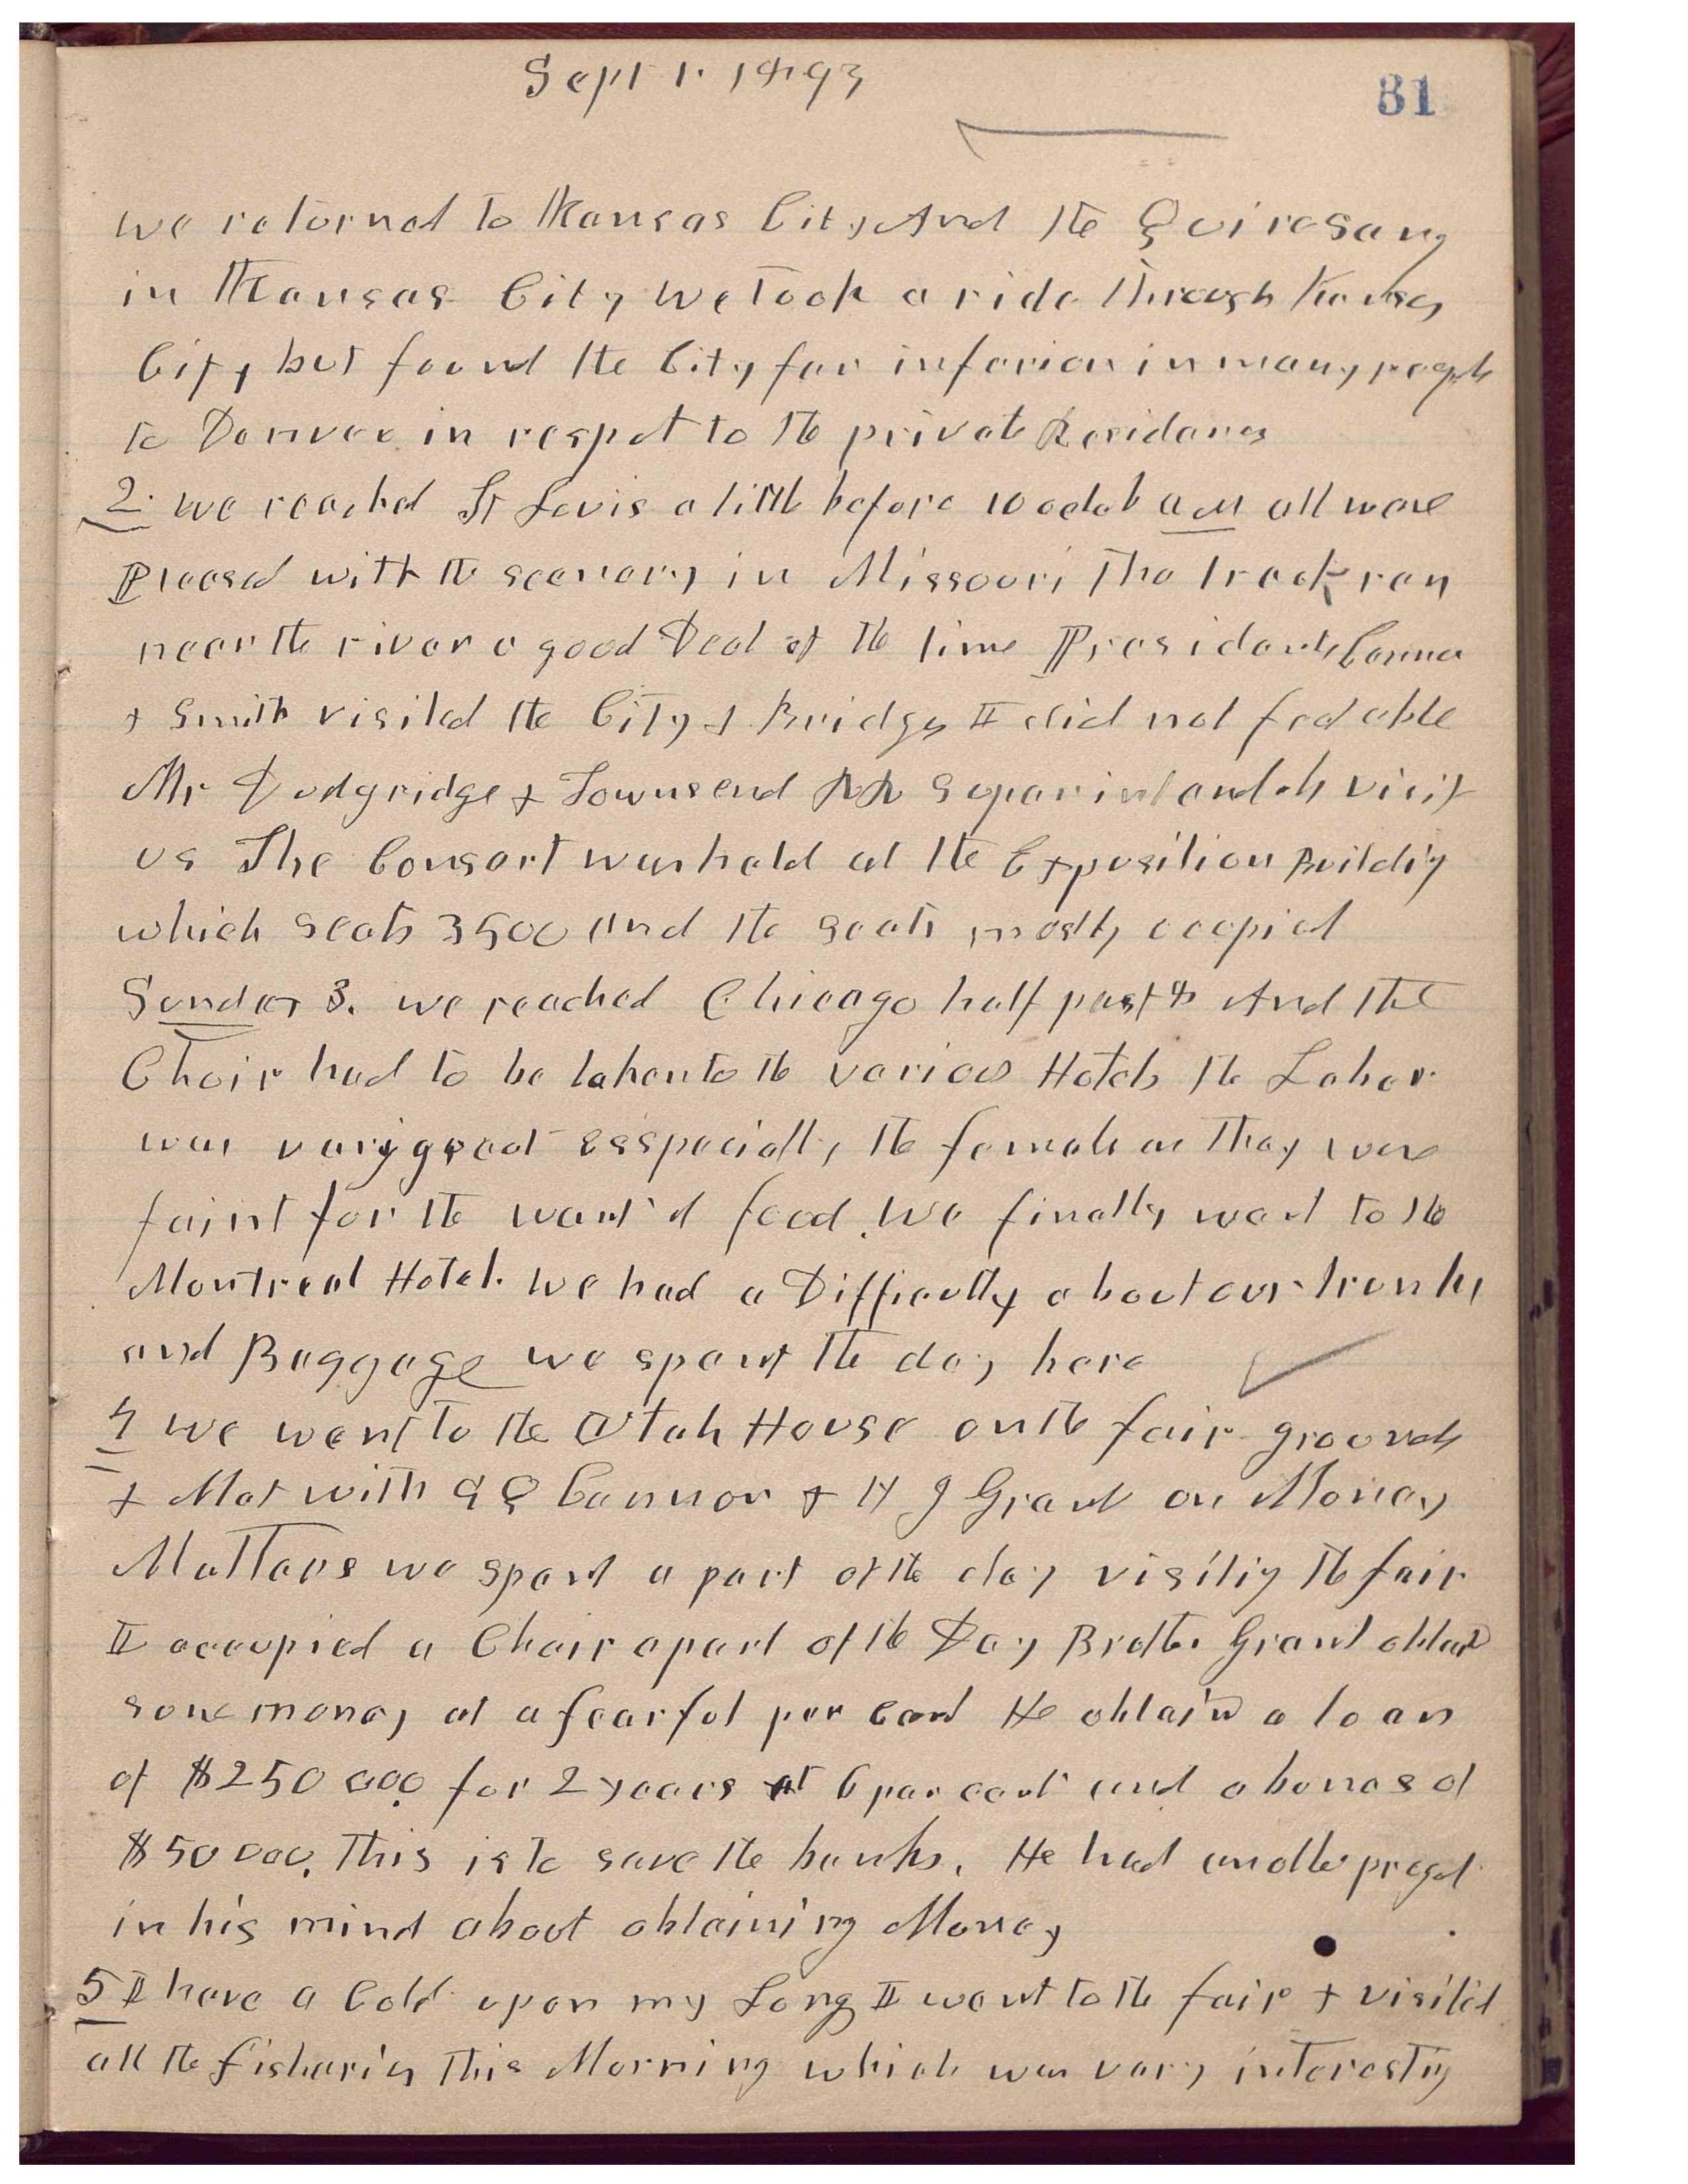 Sept 1. 1893
81
we returned to Kansas City And the Quire Sang
in Kansas City We Took a ride through Kansas
City but found the City far inferior in many
to Denver in respet to the private Residances
2. we reached St Louis a little before 10 oclok AM all were
Pleased with the scenery in Missouri The track ran
near the river a good Deal of the time Presidents Cannon
+ Smith visited the City + Bridges I did not feel able
Mr Dodgridge + Townsend RR Superintendts visit
us The Consort was held at the Exposition Buildig
which seats 3500 And the seats mostly occupied
Sunday 3. we reached Chicago half past 8 And the
Choir had to be taken to the various Hotels the Labor
was very great esspecially the female as They were
faint for the want of food. We finally went to the
Montreal Hotel. we had a Difficulty about our trunks
and Baggage we spent the day here
4 we went to the Utah House on the fair grounds
+ Met with G Q Cannon + H J Grant on Money
Matters we spent a part of the day visitig the fair
I occupied a Chair a part of the Day Brother Grant obtaind
some money at a fearful per cent He obtaind a loan
of $250000. for 2 years at 6 per cent and a bonus of
$50000. This is to save the banks. He had another
in his mind about obtaining Money
5 I have a Cold upon my Lung I went to the fair + visited
all the fisheries This Morning which was very interestig